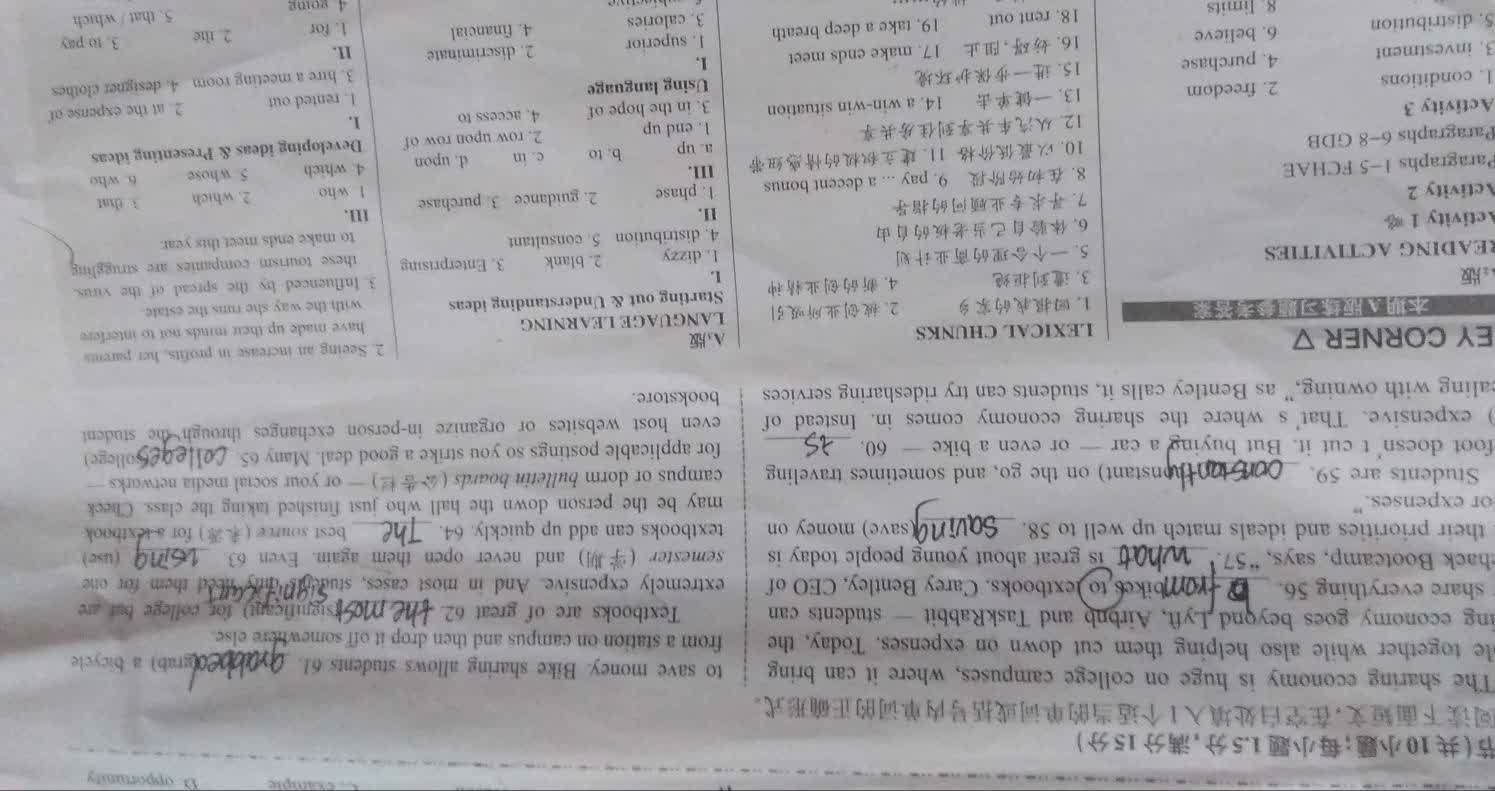 C. example D. opportunity
节(共10小题;每小题1.5分,满分15分)
阅读下面短文,在空白处填入1个适当的单词或括号内单词的正确形式。
The sharing economy is huge on college campuses, where it can bring
ple together while also helping them cut down on expenses. Today, the
ing economy goes beyond Lyft, Airbnb and TaskRabbit — students can
share everything 56. from bikes to textbooks. Carey Bentley, CEO of
hack Bootcamp, says, "57. what is great about young people today is
their priorities and ideals match up well to 58. saving (save) money on
or expenses."
Students are 59. constantly (constant) on the go, and sometimes traveling
foot doesn't cut it. But buying a car — or even a bike — 60. is
) expensive. That's where the sharing economy comes in. Instead of
ealing with owning," as Bentley calls it, students can try ridesharing services
to save money. Bike sharing allows students 61. grabbed (grab) a bicycle
from a station on campus and then drop it off somewhere else.
Textbooks are of great 62. the most significant (significant) for college but are
extremely expensive. And in most cases, students only need them for one
semester (学期) and never open them again. Even 63. using (use)
textbooks can add up quickly. 64. The best source (来源) for a textbook
may be the person down the hall who just finished taking the class. Check
campus or dorm bulletin boards (公告栏) — or your social media networks —
for applicable postings so you strike a good deal. Many 65. colleges (college)
even host websites or organize in-person exchanges through the student
bookstore.
EY CORNER ▽
本期A版练习题参考答案
A2版
READING ACTIVITIES
Activity 1 略
Activity 2
Paragraphs 1-5 FCHAE
Paragraphs 6-8 GDB
Activity 3
1. conditions 2. freedom
3. investment 4. purchase
5. distribution 6. believe
8. limits
LEXICAL CHUNKS
1. 回报我的家乡 2. 被创业所吸引
3. 遭到拒绝 4. 新的创业精神
5. 一个合理的商业计划
6. 体验自己当老板的自由
7. 寻求专业顾问的指导
8. 在初始阶段 9. pay ... a decent bonus
10. 以最低价格 11. 建立积极的情感纽带
12. 从汽车共享到住房共享
13. 一键单击 14. a win-win situation
15. 进一步保护环境
16. 妨碍,阻止 17. make ends meet
18. rent out 19. take a deep breath
A3版
LANGUAGE LEARNING
Starting out & Understanding ideas
I.
1. dizzy 2. blank 3. Enterprising
4. distribution 5. consultant
II.
1. phase 2. guidance 3. purchase
III.
a. up b. to c. in d. upon
1. end up 2. row upon row of
3. in the hope of 4. access to
Using language
I.
1. superior 2. discriminate
3. calories 4. financial
2. Seeing an increase in profits, her parents
have made up their minds not to interfere
with the way she runs the estate.
3. Influenced by the spread of the virus,
these tourism companies are struggling
to make ends meet this year.
III.
1. who 2. which 3. that
4. which 5. whose 6. who
Developing ideas & Presenting ideas
I.
1. rented out 2. at the expense of
3. hire a meeting room 4. designer clothes
II.
1. for 2. the 3. to pay
4. going 5. that / which